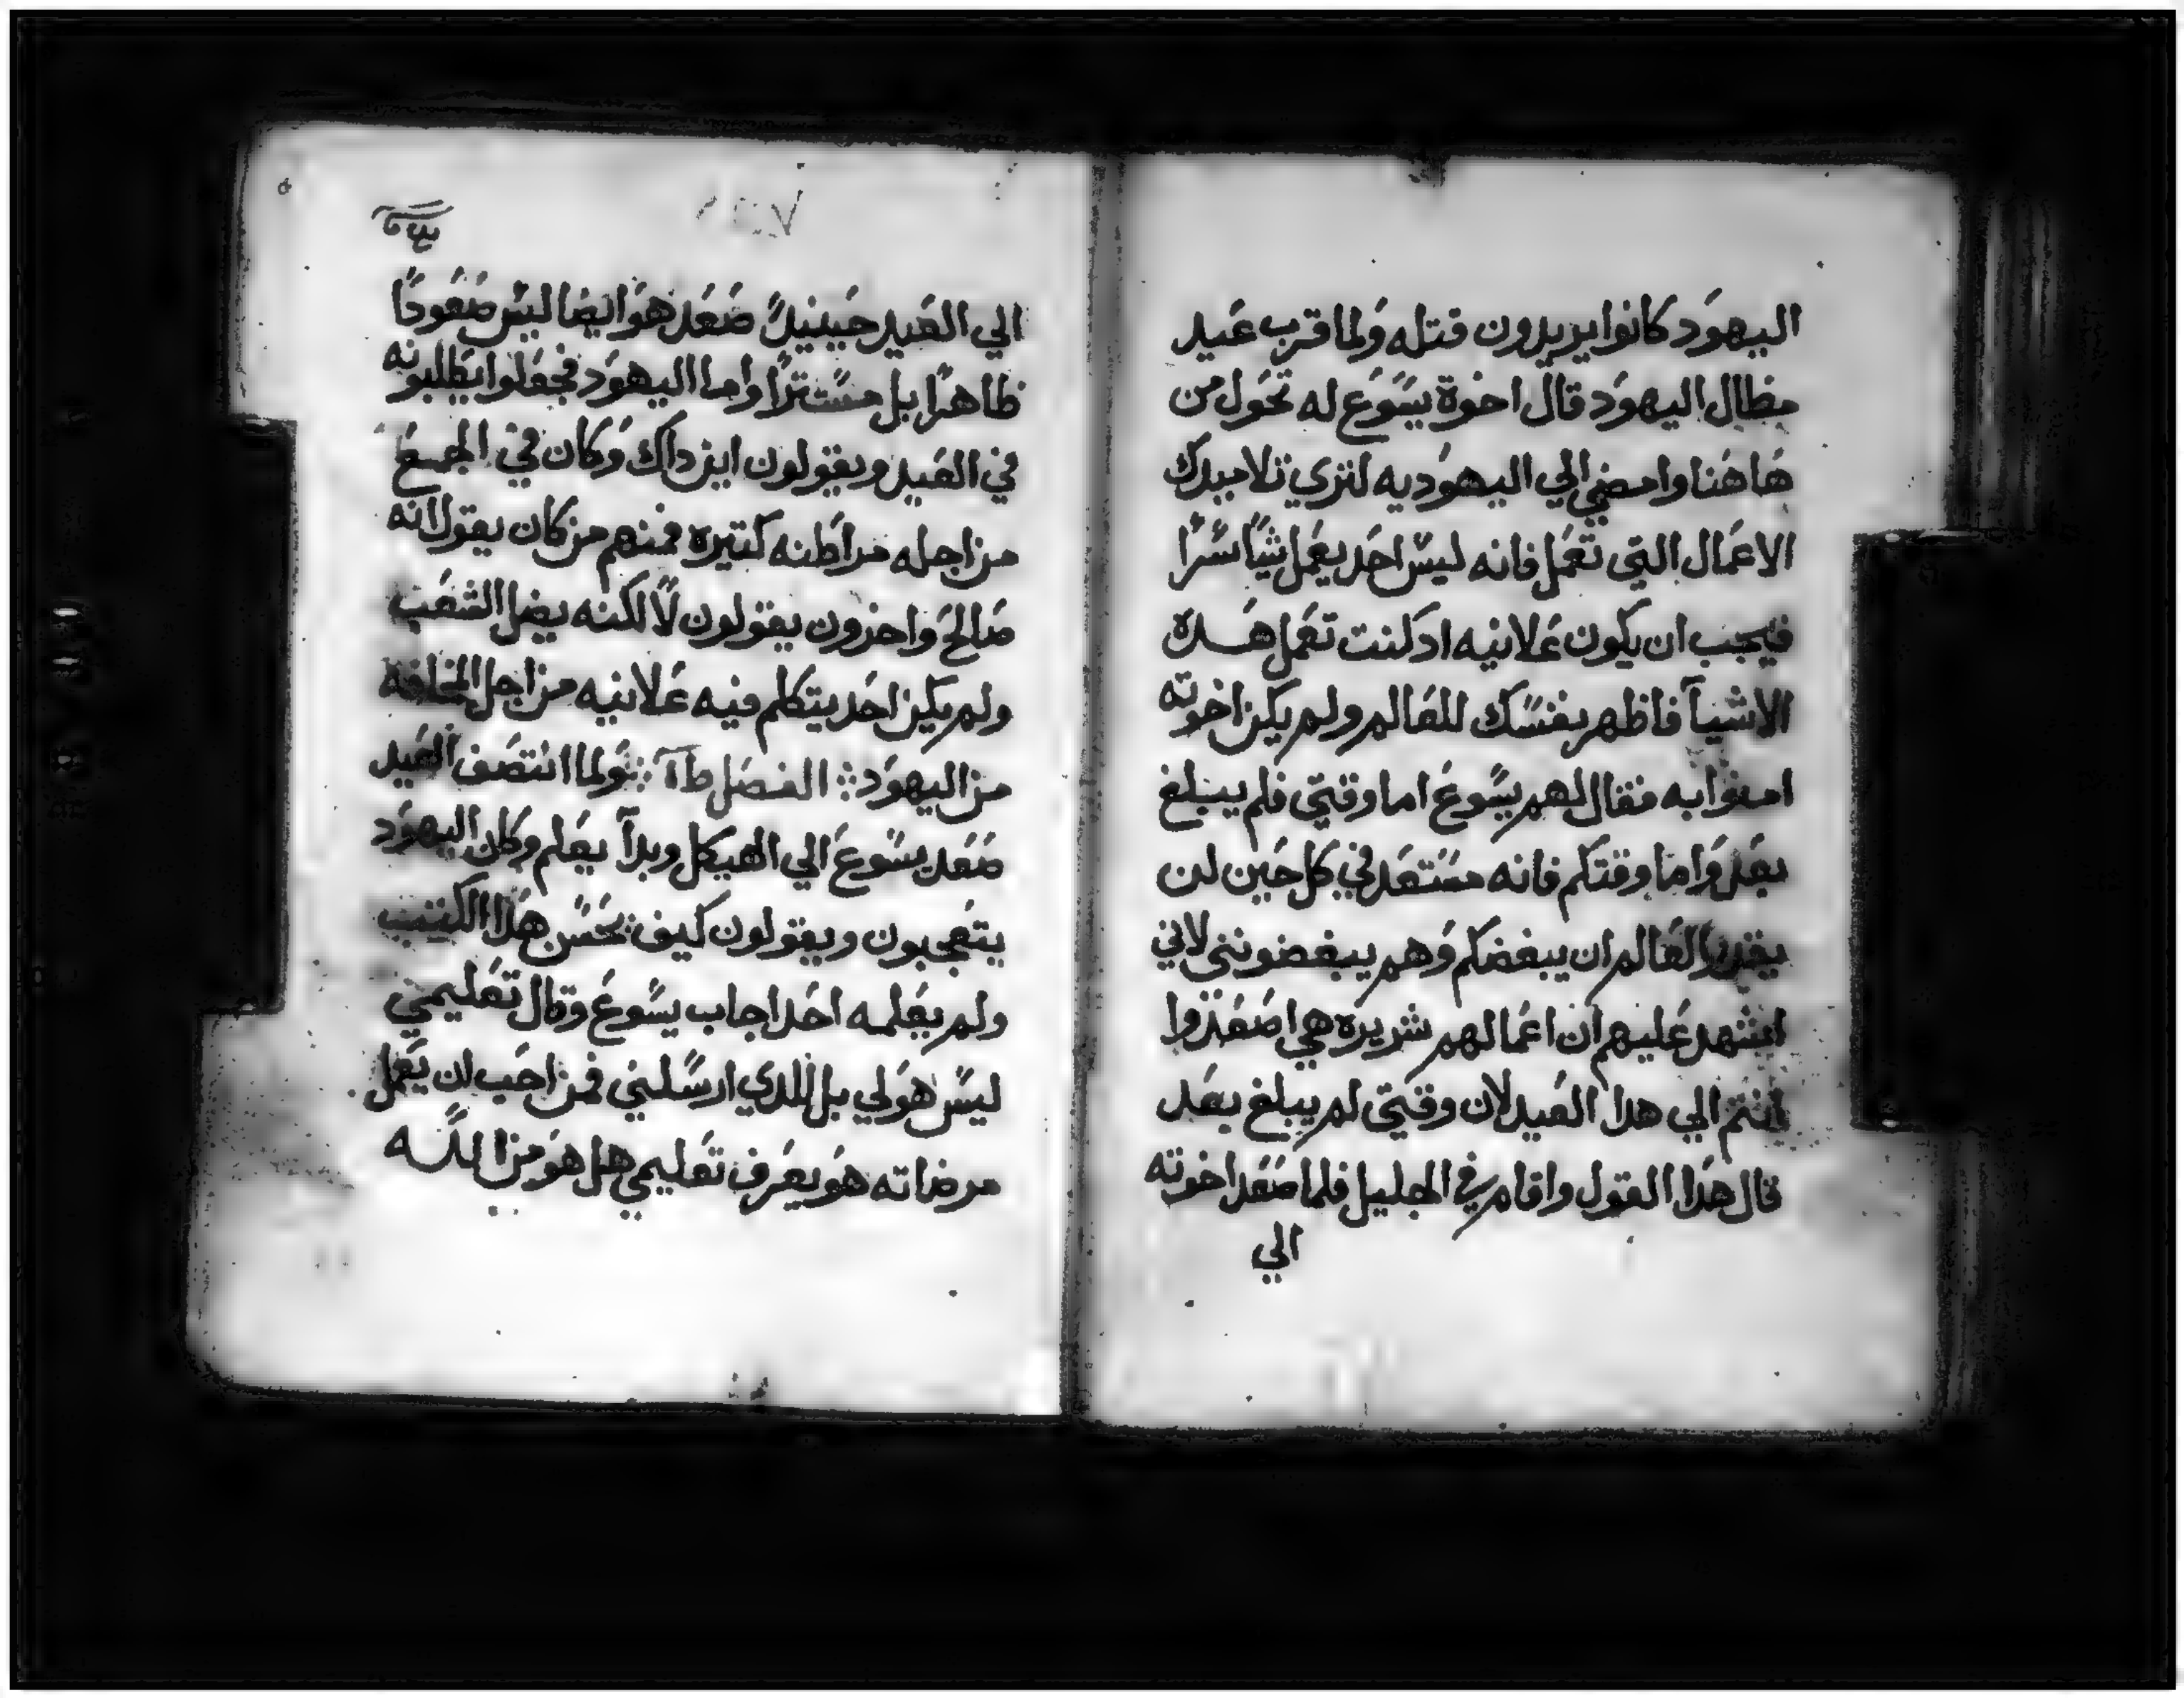 اليهود كانوا يريدون قتله ولما قرب عيد
مظال اليهود قال اخوة يسوع له تحول من
هاهنا وامضي الي اليهوديه لتري تلاميدك
الاعمال التي تعمل فانه ليس احد يعمل شيا سرا
فيجب ان يكون علانيه اد كنت تعمل هده
الاشيآ فاظهر بفسك للعالم ولم يكن اخوته
امنوا به فقال لهم يسوع اما وقتي فلم يبلغ
بعد واما وقتكم فانه مستعد في كل حين لن
يقدر العالم ان يبغضكم وهم يبغضونني لاني
اشهد عليهم ان اعمالهم شريره هي اصعدوا
انتم الي هدا العيد لان وقتي لم يبلغ بعد
قال هدا القول واقام في الجليل فلما صعد اخوته
الي
الي العيد حينيدٍ صعد هو ايضا ليس صعودًا
ظاهرًا بل مستترًا واما اليهود فجعلوا يطلبونه
في العيد ويقولون اين داك وكان في الجمع
من اجله مراطنه كتيره فمنهم من كان يقول انه
صالح واخرون يقولون لا لكنه يضل الشعب
ولم يكن احد يتكلم فيه علانيه من اجل المخافه
من اليهود الفصل طآ ولما انتصف العيد
صعد يسوع الي الهيكل وبدآ يعلم وكان اليهود
يتعجبون ويقولون كيف يحسن هدا الكتب
ولم يعلمه احد اجاب يسوع وقال تعليمي
ليس هو لي بل للدي ارسلني فمن احب ان يعمل
مرضاته هو يعرف تعليمي هل هو من الله